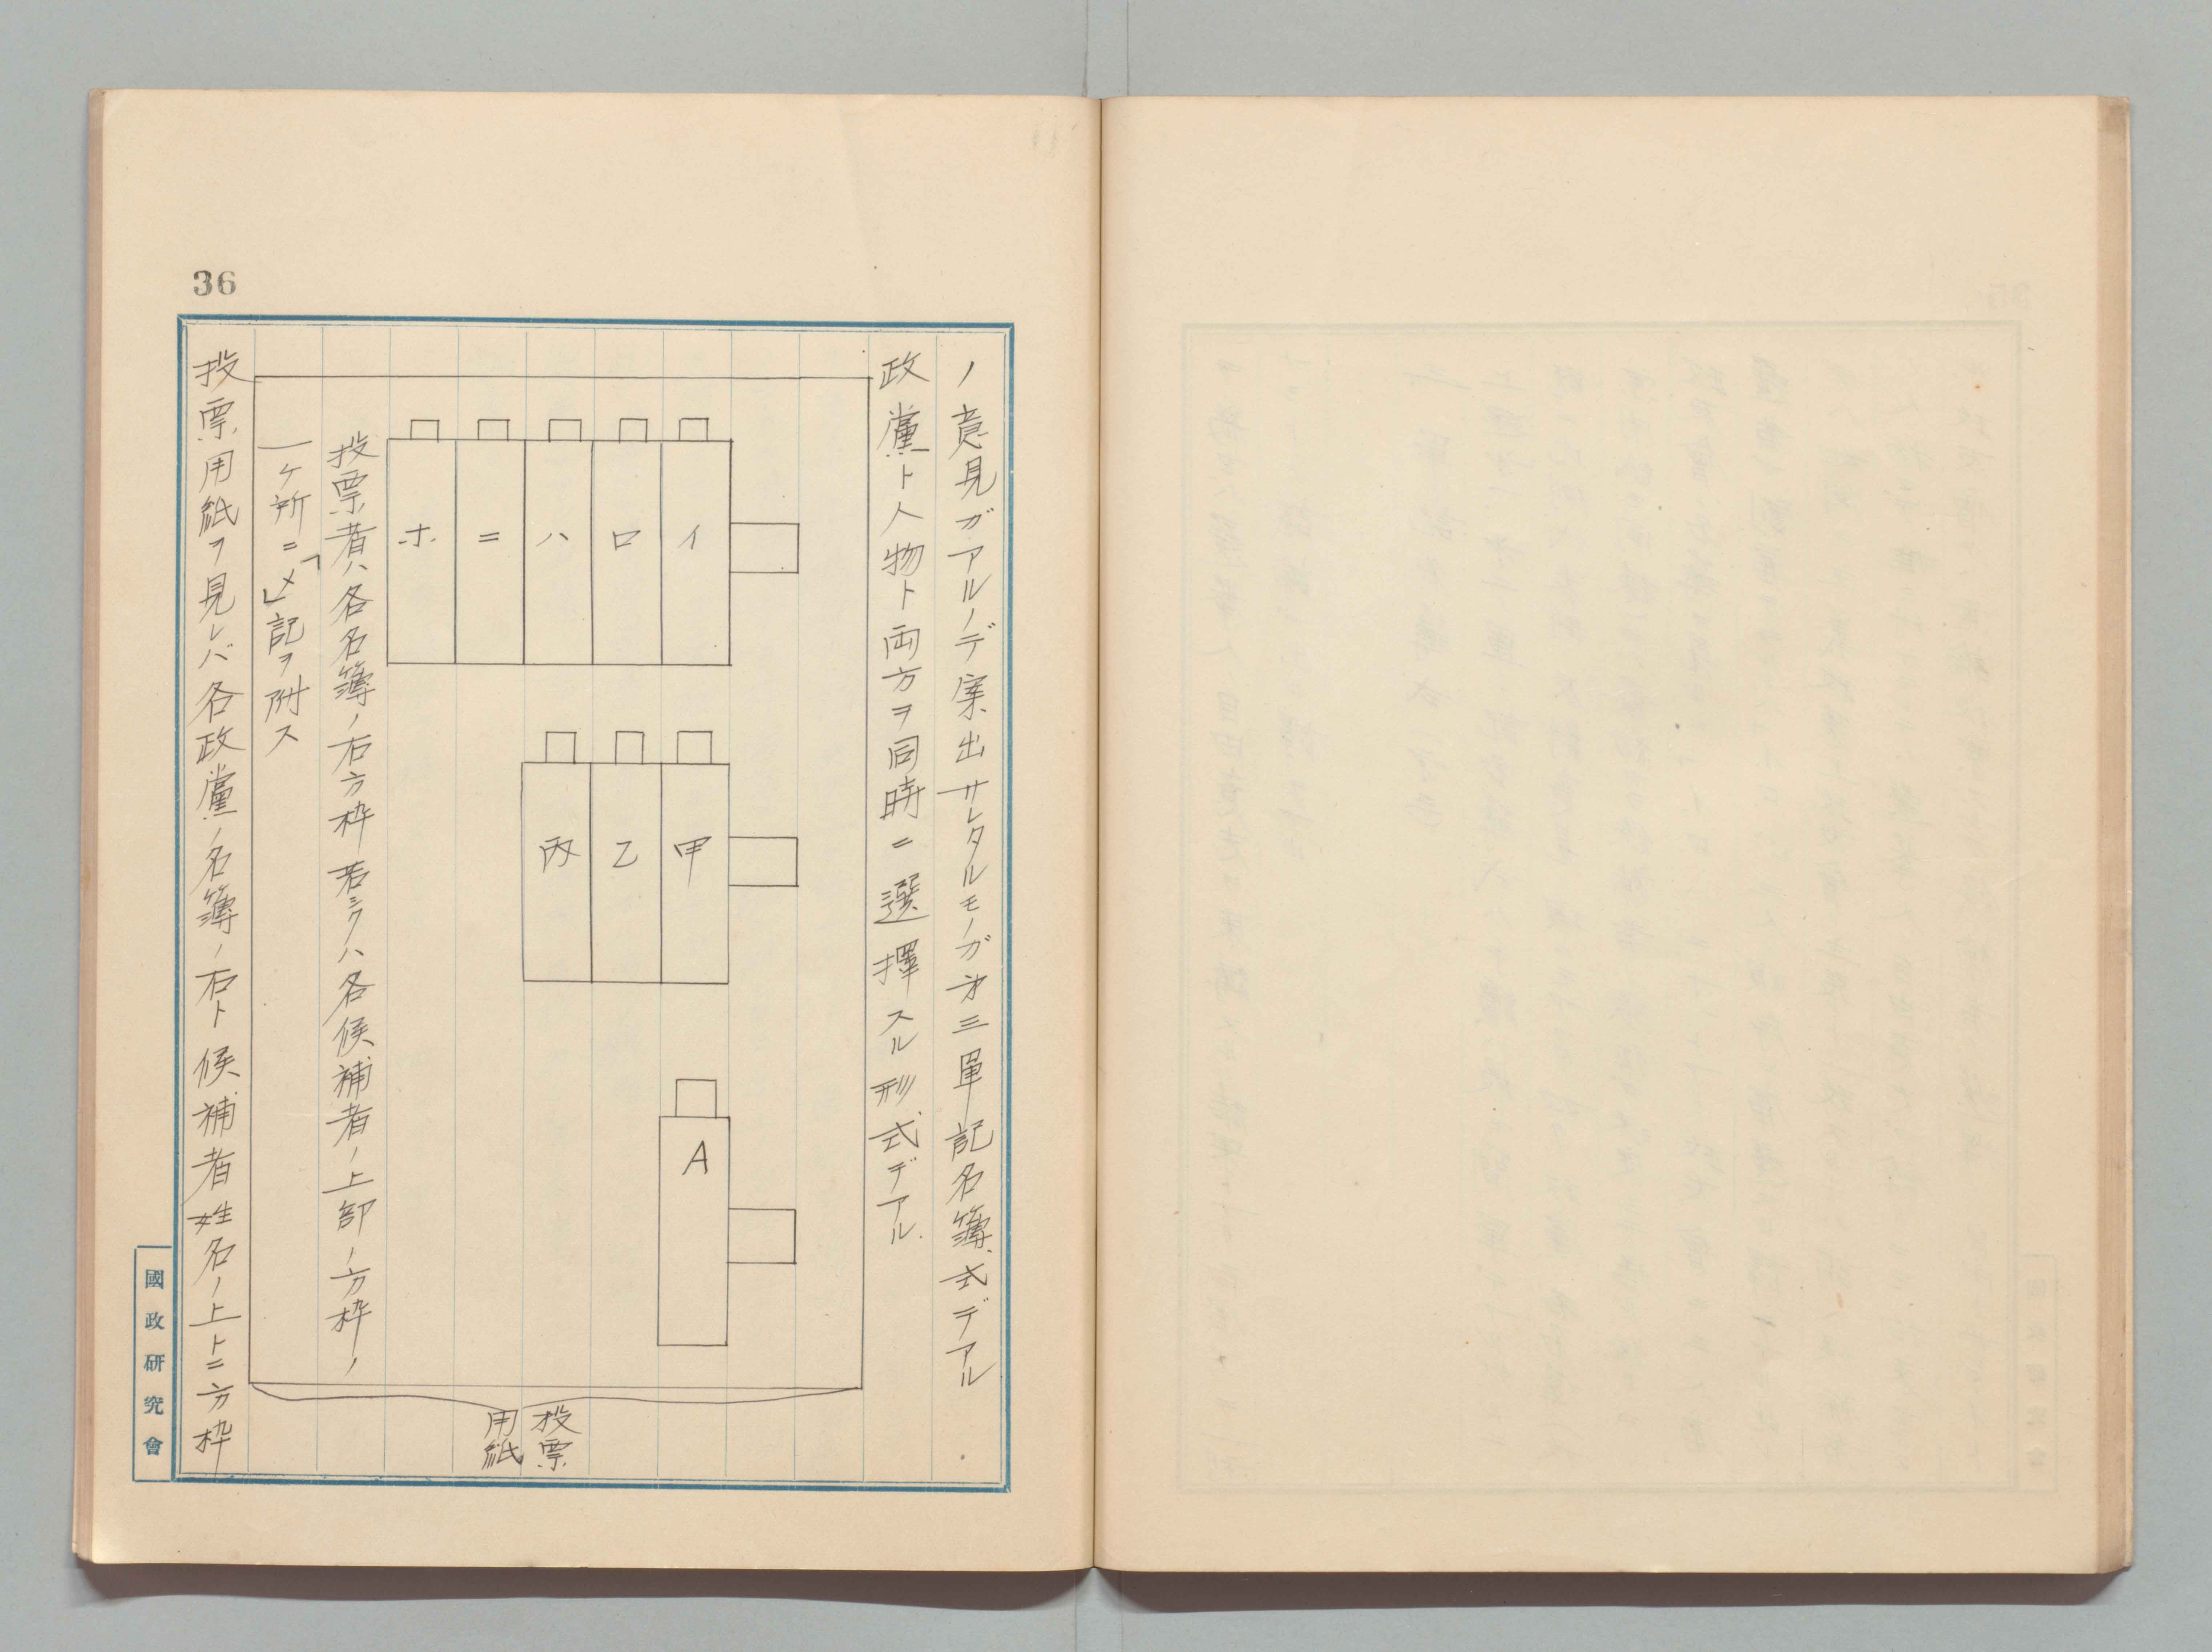 36
ノ意見ガアルノデ案出サレタルモノガ才三單記名簿式デアル
政黨ト人物ト両方ヲ同時ニ選擇スル形式デアル.
イ
ロ
ハ
ニ
ホ
甲
乙
丙
A
投票
用紙
投票者ハ各名簿ノ右方枠若シクハ各候補者ノ上部ノ方枠ノ
一ケ所ニ「〆」記ヲ附ス
投票用紙ヲ見レバ各政黨ノ名簿ノ右ト候補者姓名ノ上トニ方枠
國政研究會